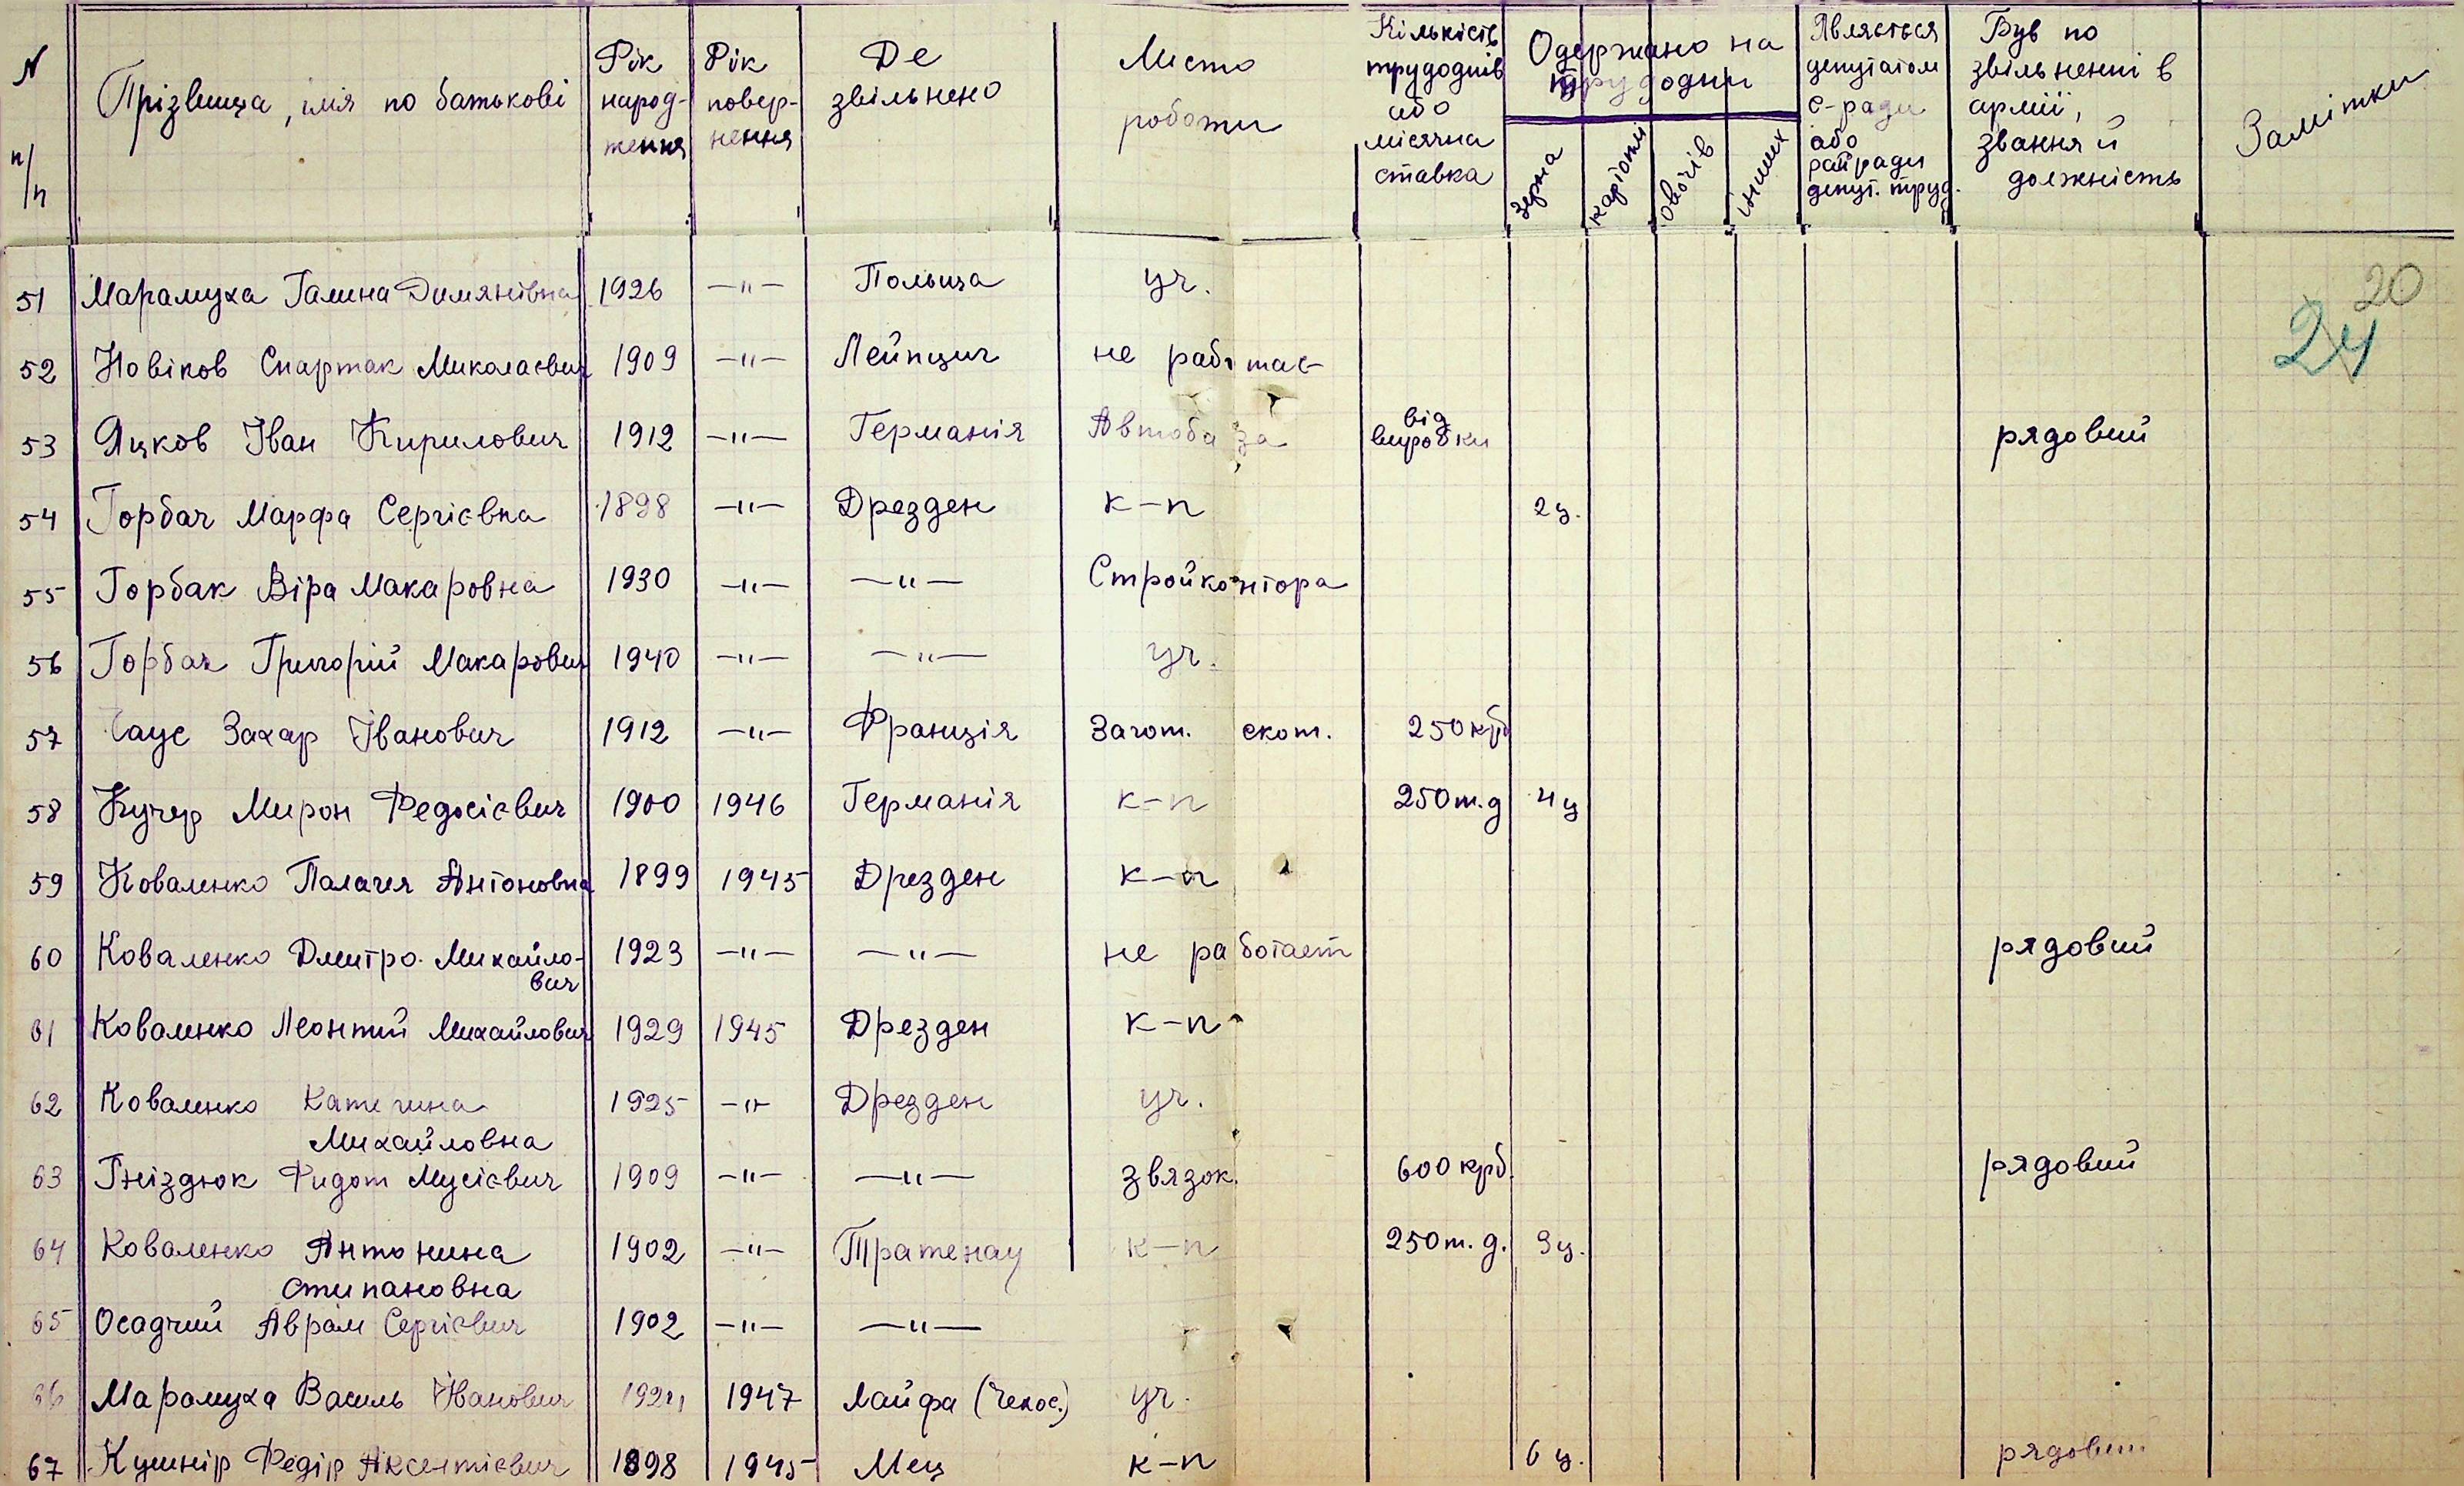 N п/п | Прізвища, імя по батькові | Рік народження | Рік повернення | Де звільнено | Место роботи | Кількість трудоднів або місячна ставка | Одержано на трудодни: зерна | картоплі | овочів | інших | Являється депутатом с-ради або райради депут. труд. | Був по звільненні в армії, звання й должність | Замітки
20
24
51 Марамуха Галина Димянівна 1926 —"— Польша уч.
52 Новіков Спартак Миколаєвич 1909 —"— Лейпциг не работає
53 Яцков Іван Кирилович 1912 —"— Германія Автобаза від виробки рядовий
54 Горбач Марфа Сергієвна 1898 —"— Дрезден к-п 2ц.
55 Горбак Віра Макаровна 1930 —"— —"— Стройконтора
56 Горбач Григорій Макарович 1940 —"— —"— уч.
57 Чаус Захар Іванович 1912 —"— Франція Загот. скот. 250 крб
58 Кучер Мирон Федосієвич 1900 1946 Германія к-п 250 т.д 4ц
59 Коваленко Палагея Антоновна 1899 1945 Дрезден к-п
60 Коваленко Дмитро Михайло-
вич 1923 —"— —"— не работает рядовий
61 Коваленко Леонтий Михайлович 1929 1945 Дрезден к-п
62 Коваленко Катерина
Михайловна 1925 —"— Дрезден уч.
63 Гніздюк Фидот Мусієвич 1909 —"— —"— звязок. 600 крб. рядовий
64 Коваленко Антонина
Степановна 1902 —"— Тратенау к-п 250 т.д. 3ц.
65 Осадчий Аврам Сергієвич 1902 —"— —"—
66 Марамуха Василь Іванович 1947 Лайфа (Чехос.) уч.
67 Кушнір Федір Аксентієвич 1898 1945 Мец к-п 6 ц. рядовий